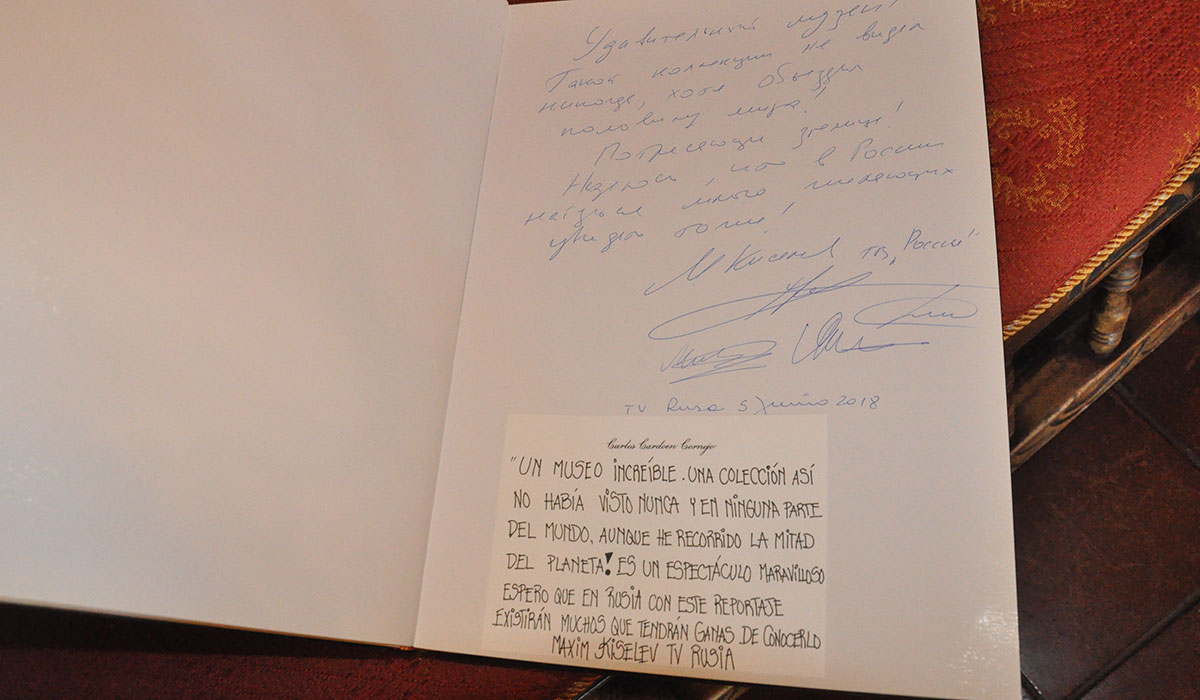 Удивительный музей!
Такой коллекции не видел
никогда, хотя объездил
половину мира!
Потрясающее зрелище!
Надеюсь, что в России
найдётся много желающих
увидеть тоже!
М Киселев ТВ "Россия"
TV Rusa 5 junio 2018
Carlos Cardoen Cornejo
"UN MUSEO INCREÍBLE. UNA COLECCIÓN ASÍ
NO HABÍA VISTO NUNCA Y EN NINGUNA PARTE
DEL MUNDO, AUNQUE HE RECORRIDO LA MITAD
DEL PLANETA! ES UN ESPECTÁCULO MARAVILLOSO
ESPERO QUE EN RUSIA CON ESTE REPORTAJE
EXISTIRÁN MUCHOS QUE TENDRÁN GANAS DE CONOCERLO
MAXIM KISELEV TV RUSIA